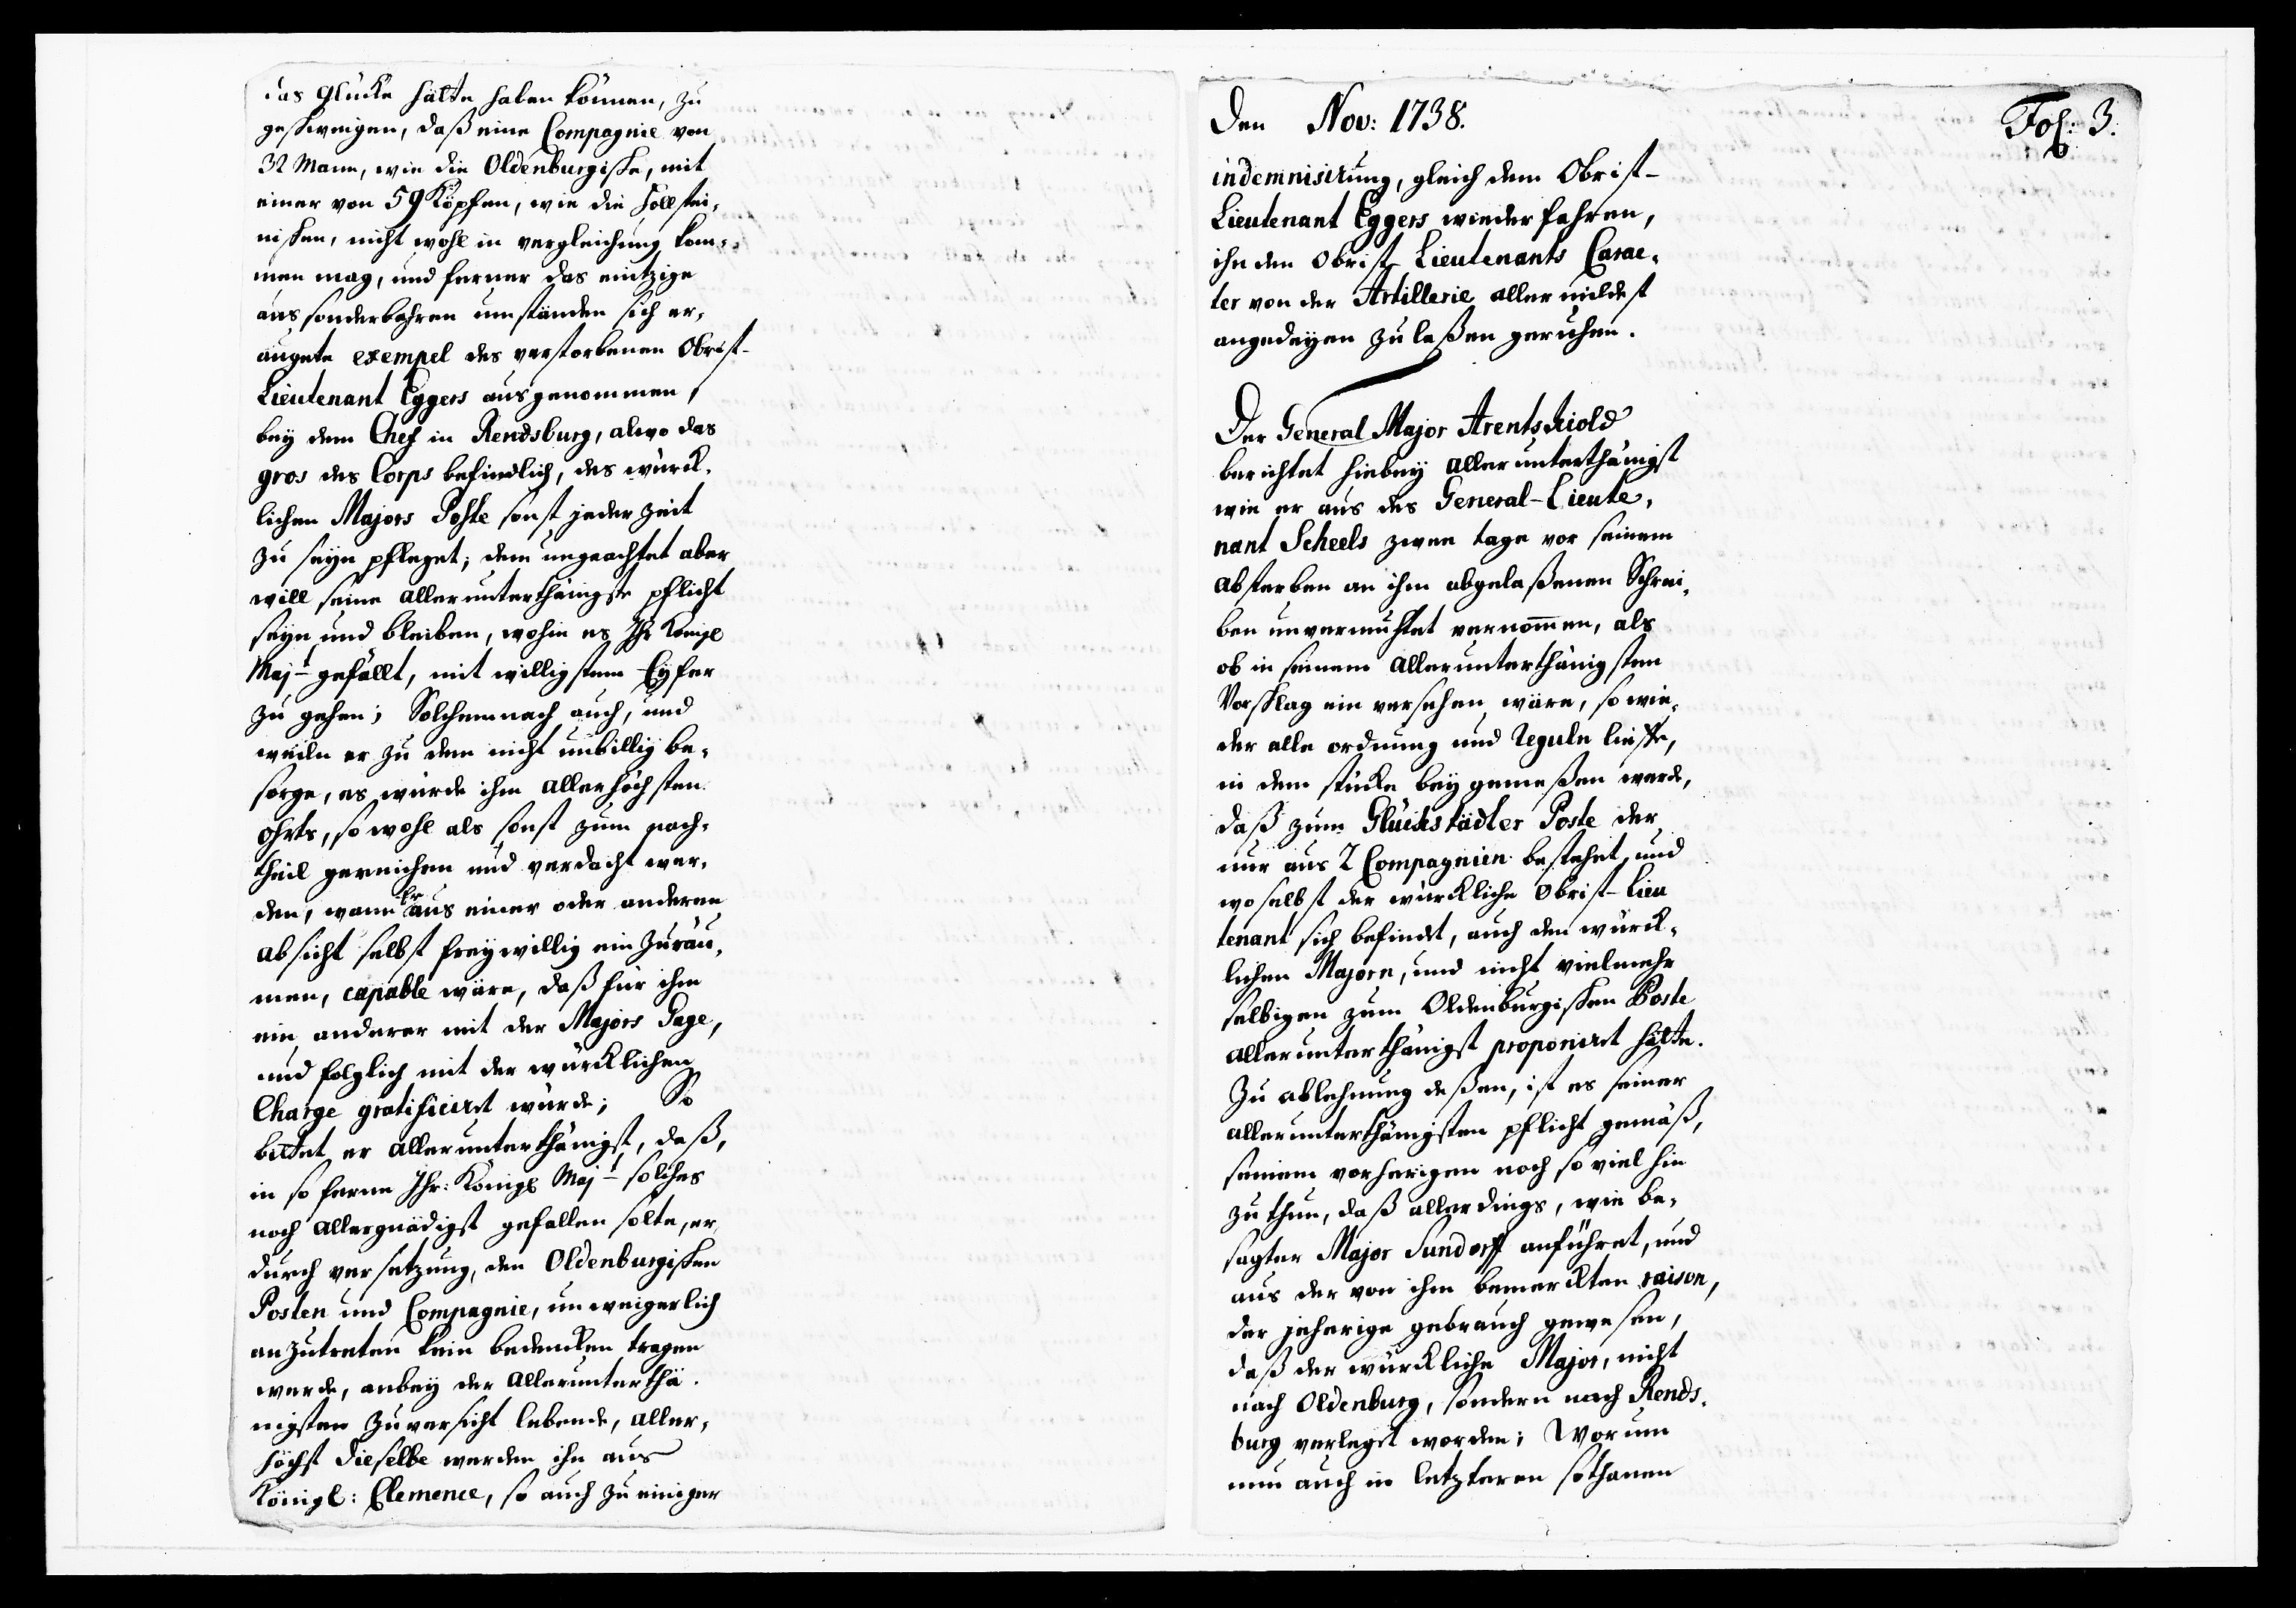 das glücke hätte haben können, zu
geschweigen, daß eine Compagnie von
32 Mann, wie die Oldenburgische, mit
einer von 59 Köpfen, wie die Hollstei-
nischen, nicht wohl in vergleichung kom-
men mag, und ferner das eintzige
aus sonderbahren umständen sich er-
äugete exempel des verstorbenen Obrist-
Lieutenant Eggers ausgenommen,
bey dem Chef in Rendsburg, alwo das
gros des Corps befindlich, des würck-
lichen Majors Poste sonst jederzeit
zu seyn pfleget; dem ungeachtet aber
will seine allerunterthänigste pflicht
seyn und bleiben, wohin es Ihr Königl
Maj-t gefällt, mit willigstem Eyfer
zu gehen; Solchemnach auch, und
weiln er zu dem nicht unbillig be-
sorge, es würde ihm allerhöchsten
ohrts, so wohl als sonst zum nach-
theil gereichen und verdacht wer-
den, wann Er aus einer oder anderen
absicht selbst freywillig einzuräu-
men, capable wäre, daß für ihm
ein anderer mit der Majors Gage,
und folglich mit der würcklichen
Charge gratificiret würde; So
bittet er allerunterthänigst, daß,
in so ferne Ihr: Königl Maj-t solches
noch allergnädigst gefallen solte, er
durch versetzung, den Oldenburgischen
Posten und Compagnie, unweigerlich
anzutreten kein bedencken tragen
werde, anbey der allerunterthä-
nigsten zuversicht lebende, aller-
höchst dieselbe werden ihn aus
Königl: Clemence, so auch zu einiger
Den Nov: 1738.
Fol: 3.
indemnisirung, gleich dem Obrist-
Lieutenant Eggers wiederfahren,
ihn den Obrist Lieutenants Carac-
ter von der Artillerie allermildest
angedeyen zu laßen geruhen.
Der General Major Arentskiold
berichtet hiebey allerunterthänigst
wie er aus des General-Lieute-
nant Scheels zween tage vor seinem
absterben an ihm abgelaßenen Schrei-
ben unvermuhtet vernom̅en, als
ob in seinem allerunterthänigsten
Vorschlag ein versehen wäre, so wie-
der alle ordnung und Reguln lieffe,
in dem stücke beygemeßen werde,
daß zum Glückstädter Poste der
nur aus 2 Compagnien bestehet, und
woselbst der würckliche Obrist-Lieu
tenant sich befindet, auch den würck-
lichen Majorn, und nicht vielmehr
selbigen zum Oldenburgischen Poste
allerunterthänigst proponiret hätte.
Zu ablehnung deßen, ist es seiner
allerunterthänigsten pflicht gemäß,
seinem vorherigen noch so viel hin
zu thun, daß allerdings, wie be-
sagter Major Sundorff anführet, und
aus der von ihm bemerckten raison,
der jeherige gebrauch gewesen,
daß der würckliche Major, nicht
nach Oldenburg, sondern nach Rends-
burg verleget worden; Worum
nun auch in letzteren sothanen